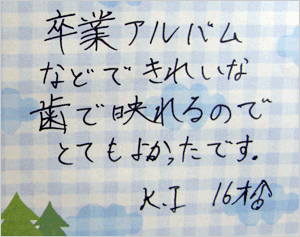 卒業アルバム
などできれいな
歯で映れるので
とてもよかったです。
K.I 16才♂